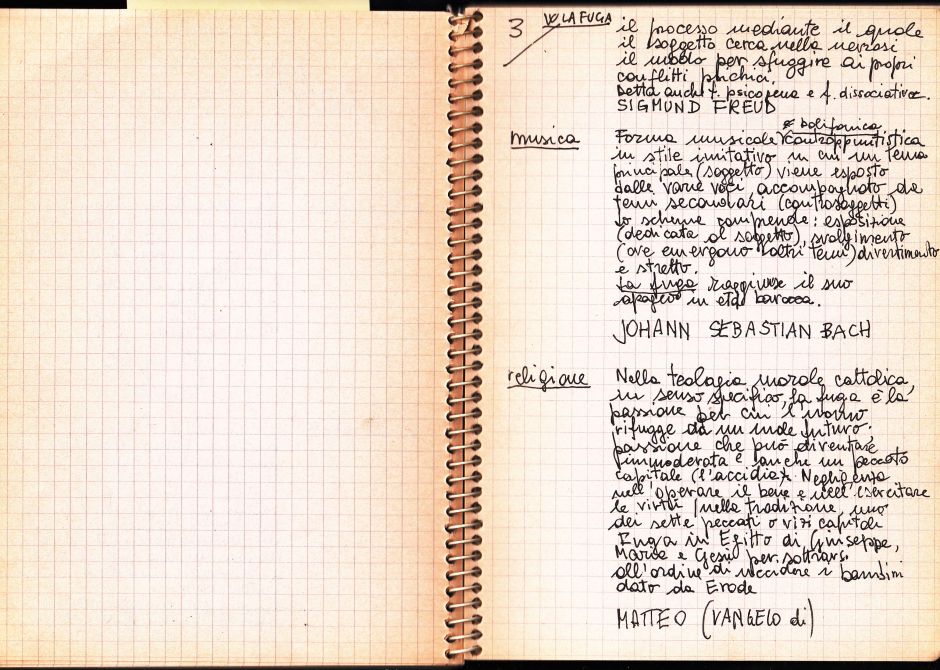 3 LA FUGA
il processo mediante il quale
il soggetto cerca nella nevrosi
il modo per sfuggire ai propri
conflitti psichici.
Detta anche f. psicogena e f. dissociativa.
SIGMUND FREUD
* polifonica
musica Forma musicale * contrappuntistica
in stile imitativo in cui un tema
principale (soggetto) viene esposto
dalle varie voci accompagnato da
temi secondari (controsoggetti)
Lo schema comprende: esposizione
(dedicata al soggetto), svolgimento
(ove emergono altri temi) divertimento
e stretto.
La fuga raggiunse il suo
apogeo in età barocca.
JOHANN SEBASTIAN BACH
religione Nella teologia morale cattolica,
in senso specifico, la fuga è la
passione per cui l'uomo
rifugge da un male futuro;
passione che può diventare
immoderata e anche un peccato
capitale (l'accidia). Negligenza
nell'operare il bene e nell'esercitare
le virtù (nella tradizione, uno
dei sette peccati o vizi capitali
Fuga in Egitto di Giuseppe,
Maria e Gesù per sottrarsi
all'ordine di uccidere i bambini
dato da Erode
MATTEO (VANGELO di)